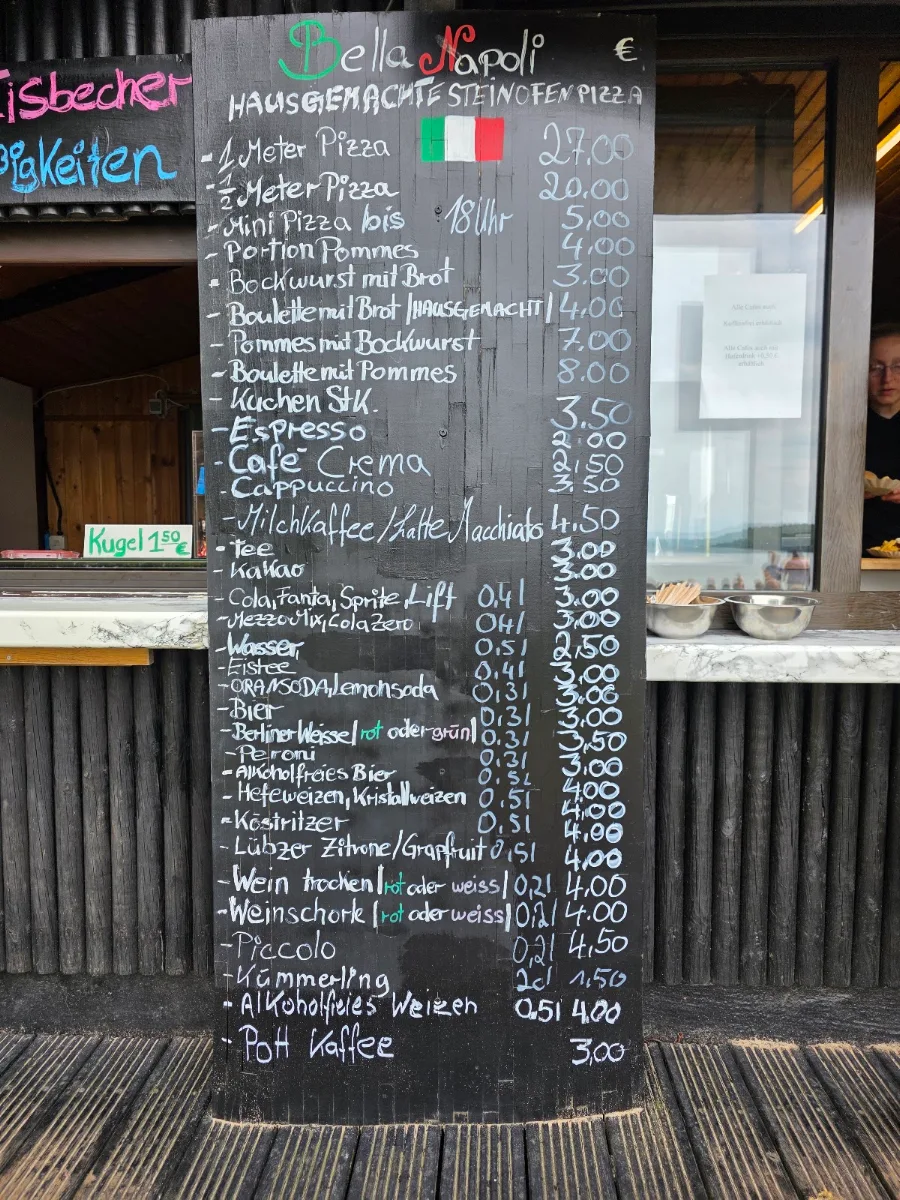 Eisbecher
Bella Napoli €
HAUSGEMACHTE STEINOFENPIZZA
- 1 Meter Pizza 27.00
- 1/2 Meter Pizza 20.00
- Mini Pizza bis 18 Uhr 5,00
- Portion Pommes 4,00
- Bockwurst mit Brot 3.00
- Boulette mit Brot |HAUSGEMACHT| 4.00
- Pommes mit Bockwurst 7.00
- Boulette mit Pommes 8.00
- Kuchen Stk. 3,50
- Espresso 2,00
- Café Crema 2,50
- Cappuccino 3.50
- Milchkaffee/Latte Macchiato 4.50
- Tee 3.00
- Kakao 3.00
- Cola, Fanta, Sprite, Lift 0,4l 3.00
- MezzoMix, Cola Zero 04l 3,00
- Wasser 0.5l 2,50
- Eistee 0.4l 3,00
- ORANSODA, Lemonsoda 0.3l 3.00
- Bier 0,3l 3,00
- Berliner Weisse |rot oder grün| 0.3l 3,50
- Peroni 0.3l 3,00
- Alkoholfreies Bier 0.5l 4,00
- Hefeweizen, Kristallweizen 0.5l 4,00
- Köstritzer 0,5l 4,00
- Lübzer Zitrone/Grapfruit 0,5l 4,00
- Wein trocken |rot oder weiss| 0,2l 4.00
- Weinschorle |rot oder weiss| 0,2l 4.00
- Piccolo 0,2l 4,50
- Kümmerling 2cl 1,50
- Alkoholfreies Weizen 0.5l 4.00
- Pott Kaffee 3,00
Kugel 1.50 €